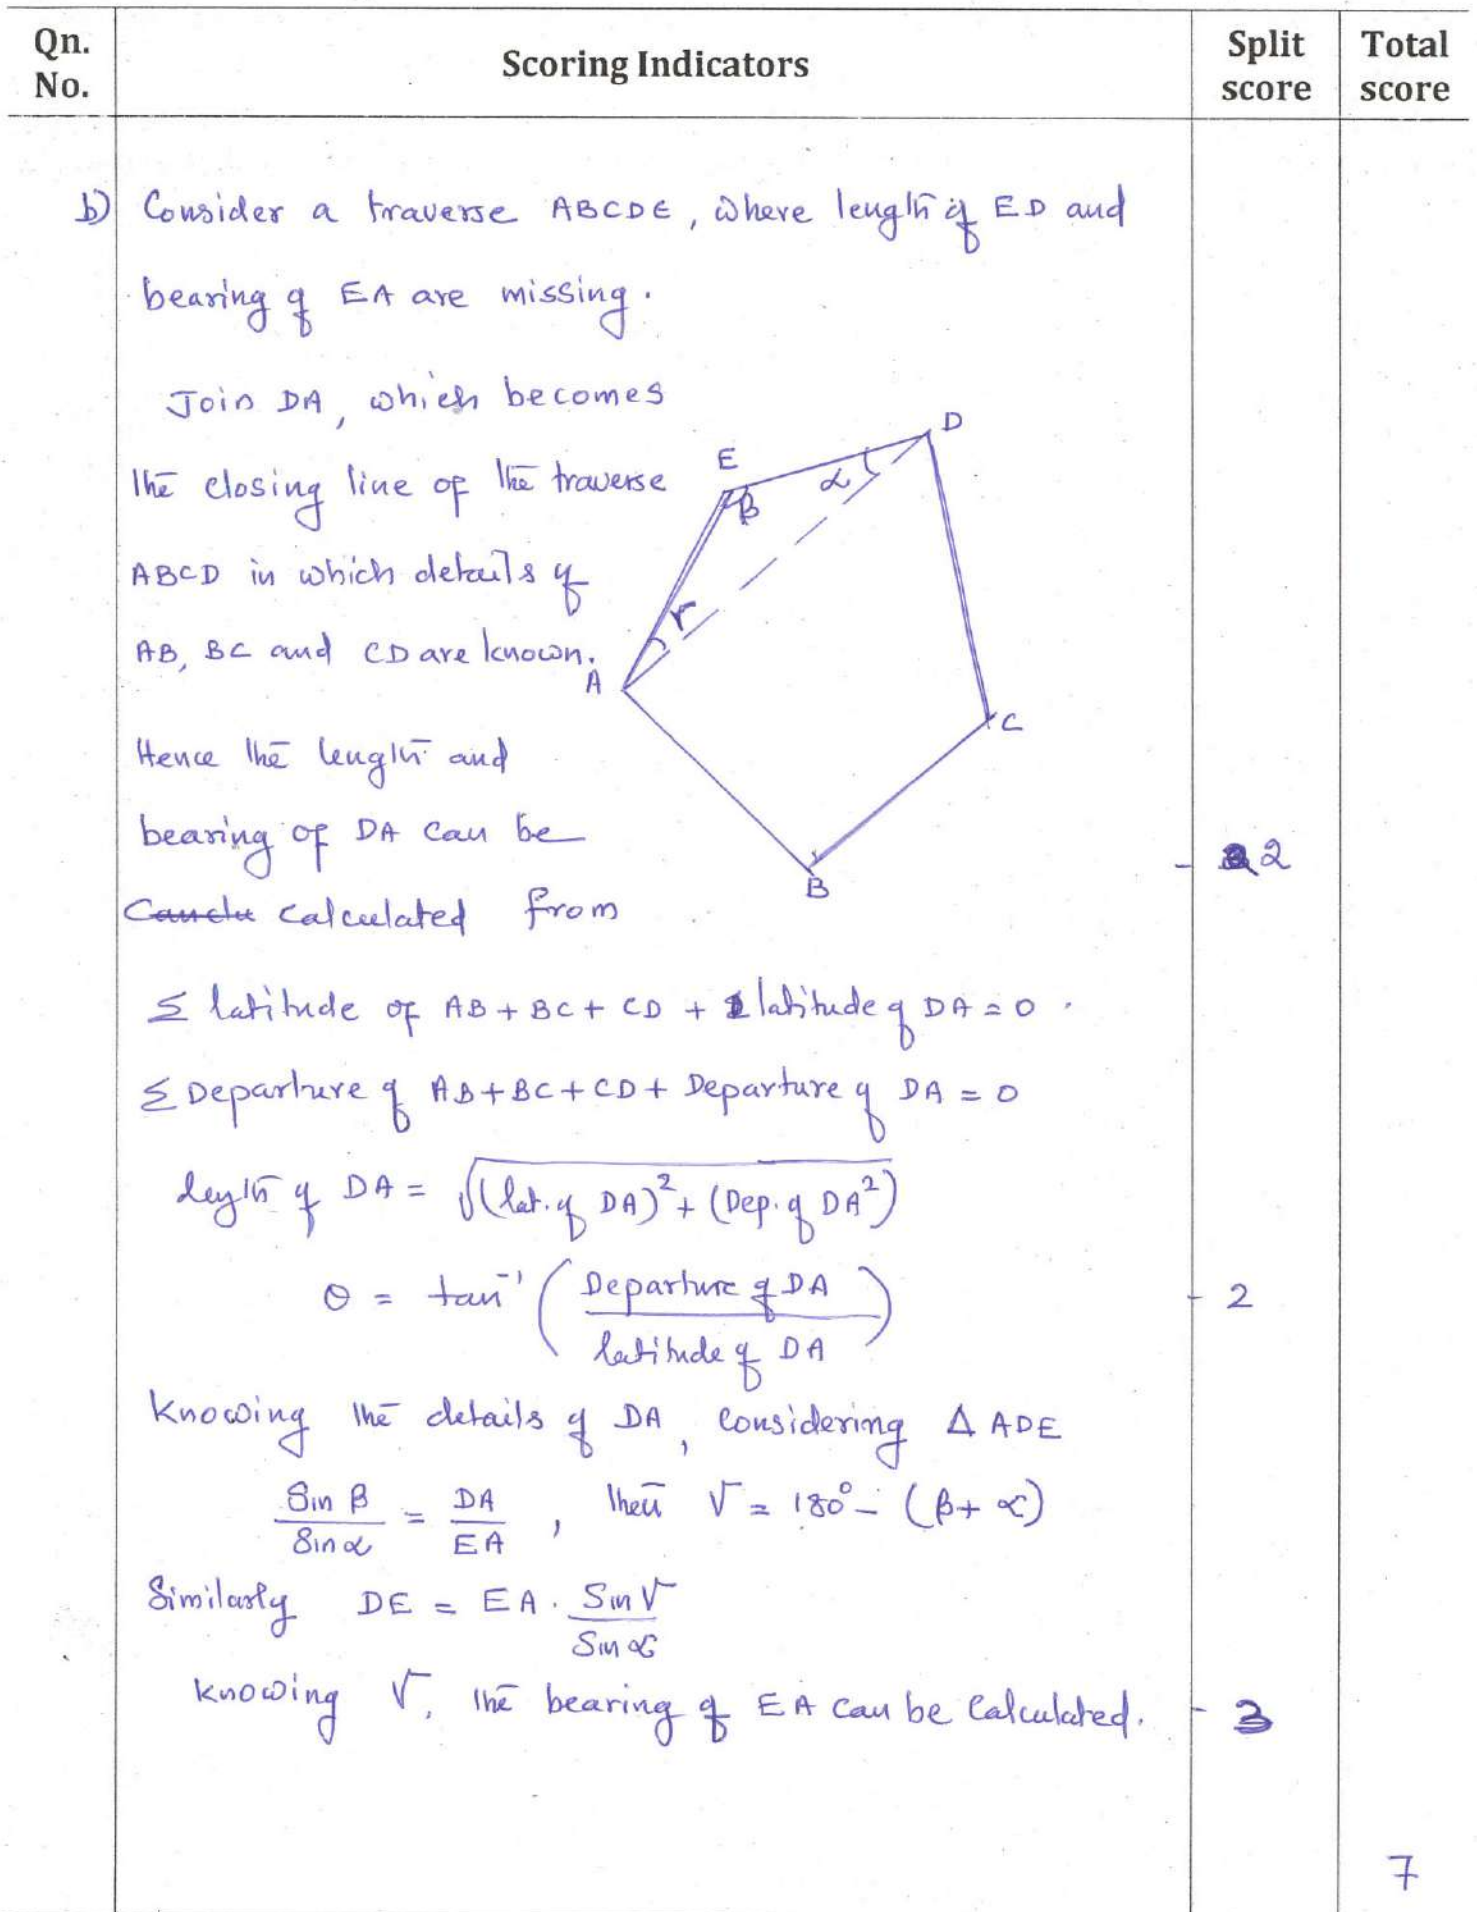 Qn. No.
Scoring Indicators
Split score
Total score
b) Consider a traverse ABCDE, where length of ED and
bearing of EA are missing.
Join DA, which becomes
the closing line of the traverse
ABCD in which details of
AB, BC and CD are known.
Hence the length and
bearing of DA can be
calculated from
E
D
α
β
γ
A
C
B
- 2
Σ latitude of AB + BC + CD + latitude of DA = 0.
Σ Departure of AB + BC + CD + Departure of DA = 0
length of DA = √(lat. of DA)² + (Dep. of DA²)
θ = tan⁻¹ (Departure of DA / latitude of DA) - 2
Knowing the details of DA, considering Δ ADE
Sin β / Sin α = DA / EA , then γ = 180° - (β + α)
Similarly DE = EA . Sin γ / Sin α
Knowing γ, the bearing of EA can be calculated. - 3
7